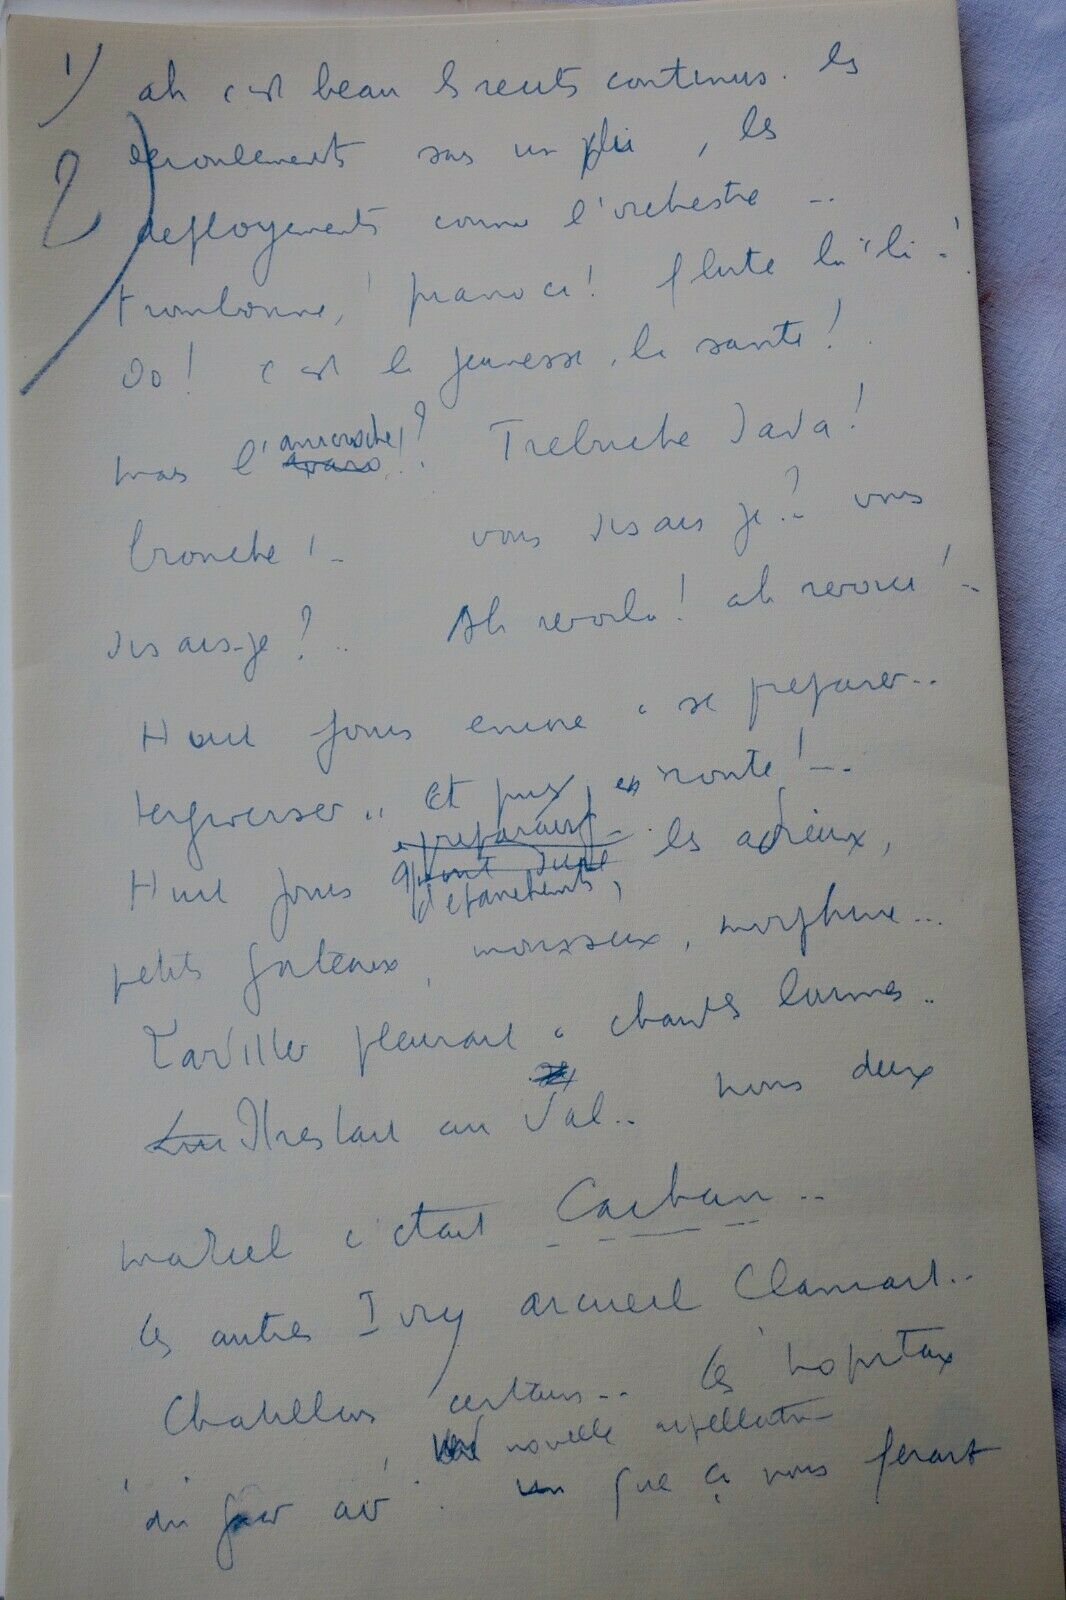 1) ah c'est beau les recits continus. les
2) deroulements sans un pli, les
deployements comme l'orchestre ..
trombonne, ! piano ci! flute la "li -!
Do! c'est la jeunesse, la sante!
mais l'anicroche!? Trebuche Java!
bronche! - vous disais je?.. vous
disais-je?.. Ah revoila! ah revoici! -
Huit jours encore a se preparer..
tergiverser.. Et puis, en route! -..
Huit jours
d'epanchements, les adieux,
petits gateaux, mousseux, morphine...
pleurait a chaudes larmes..
Il restait au Val.. nous deux
marcel c'etait Cachan ..
les autres Ivry arcueil Clamart..
Chatillon certains.. les hopitaux
nouvelle appellation
'du Grand air'. que ça nous ferait